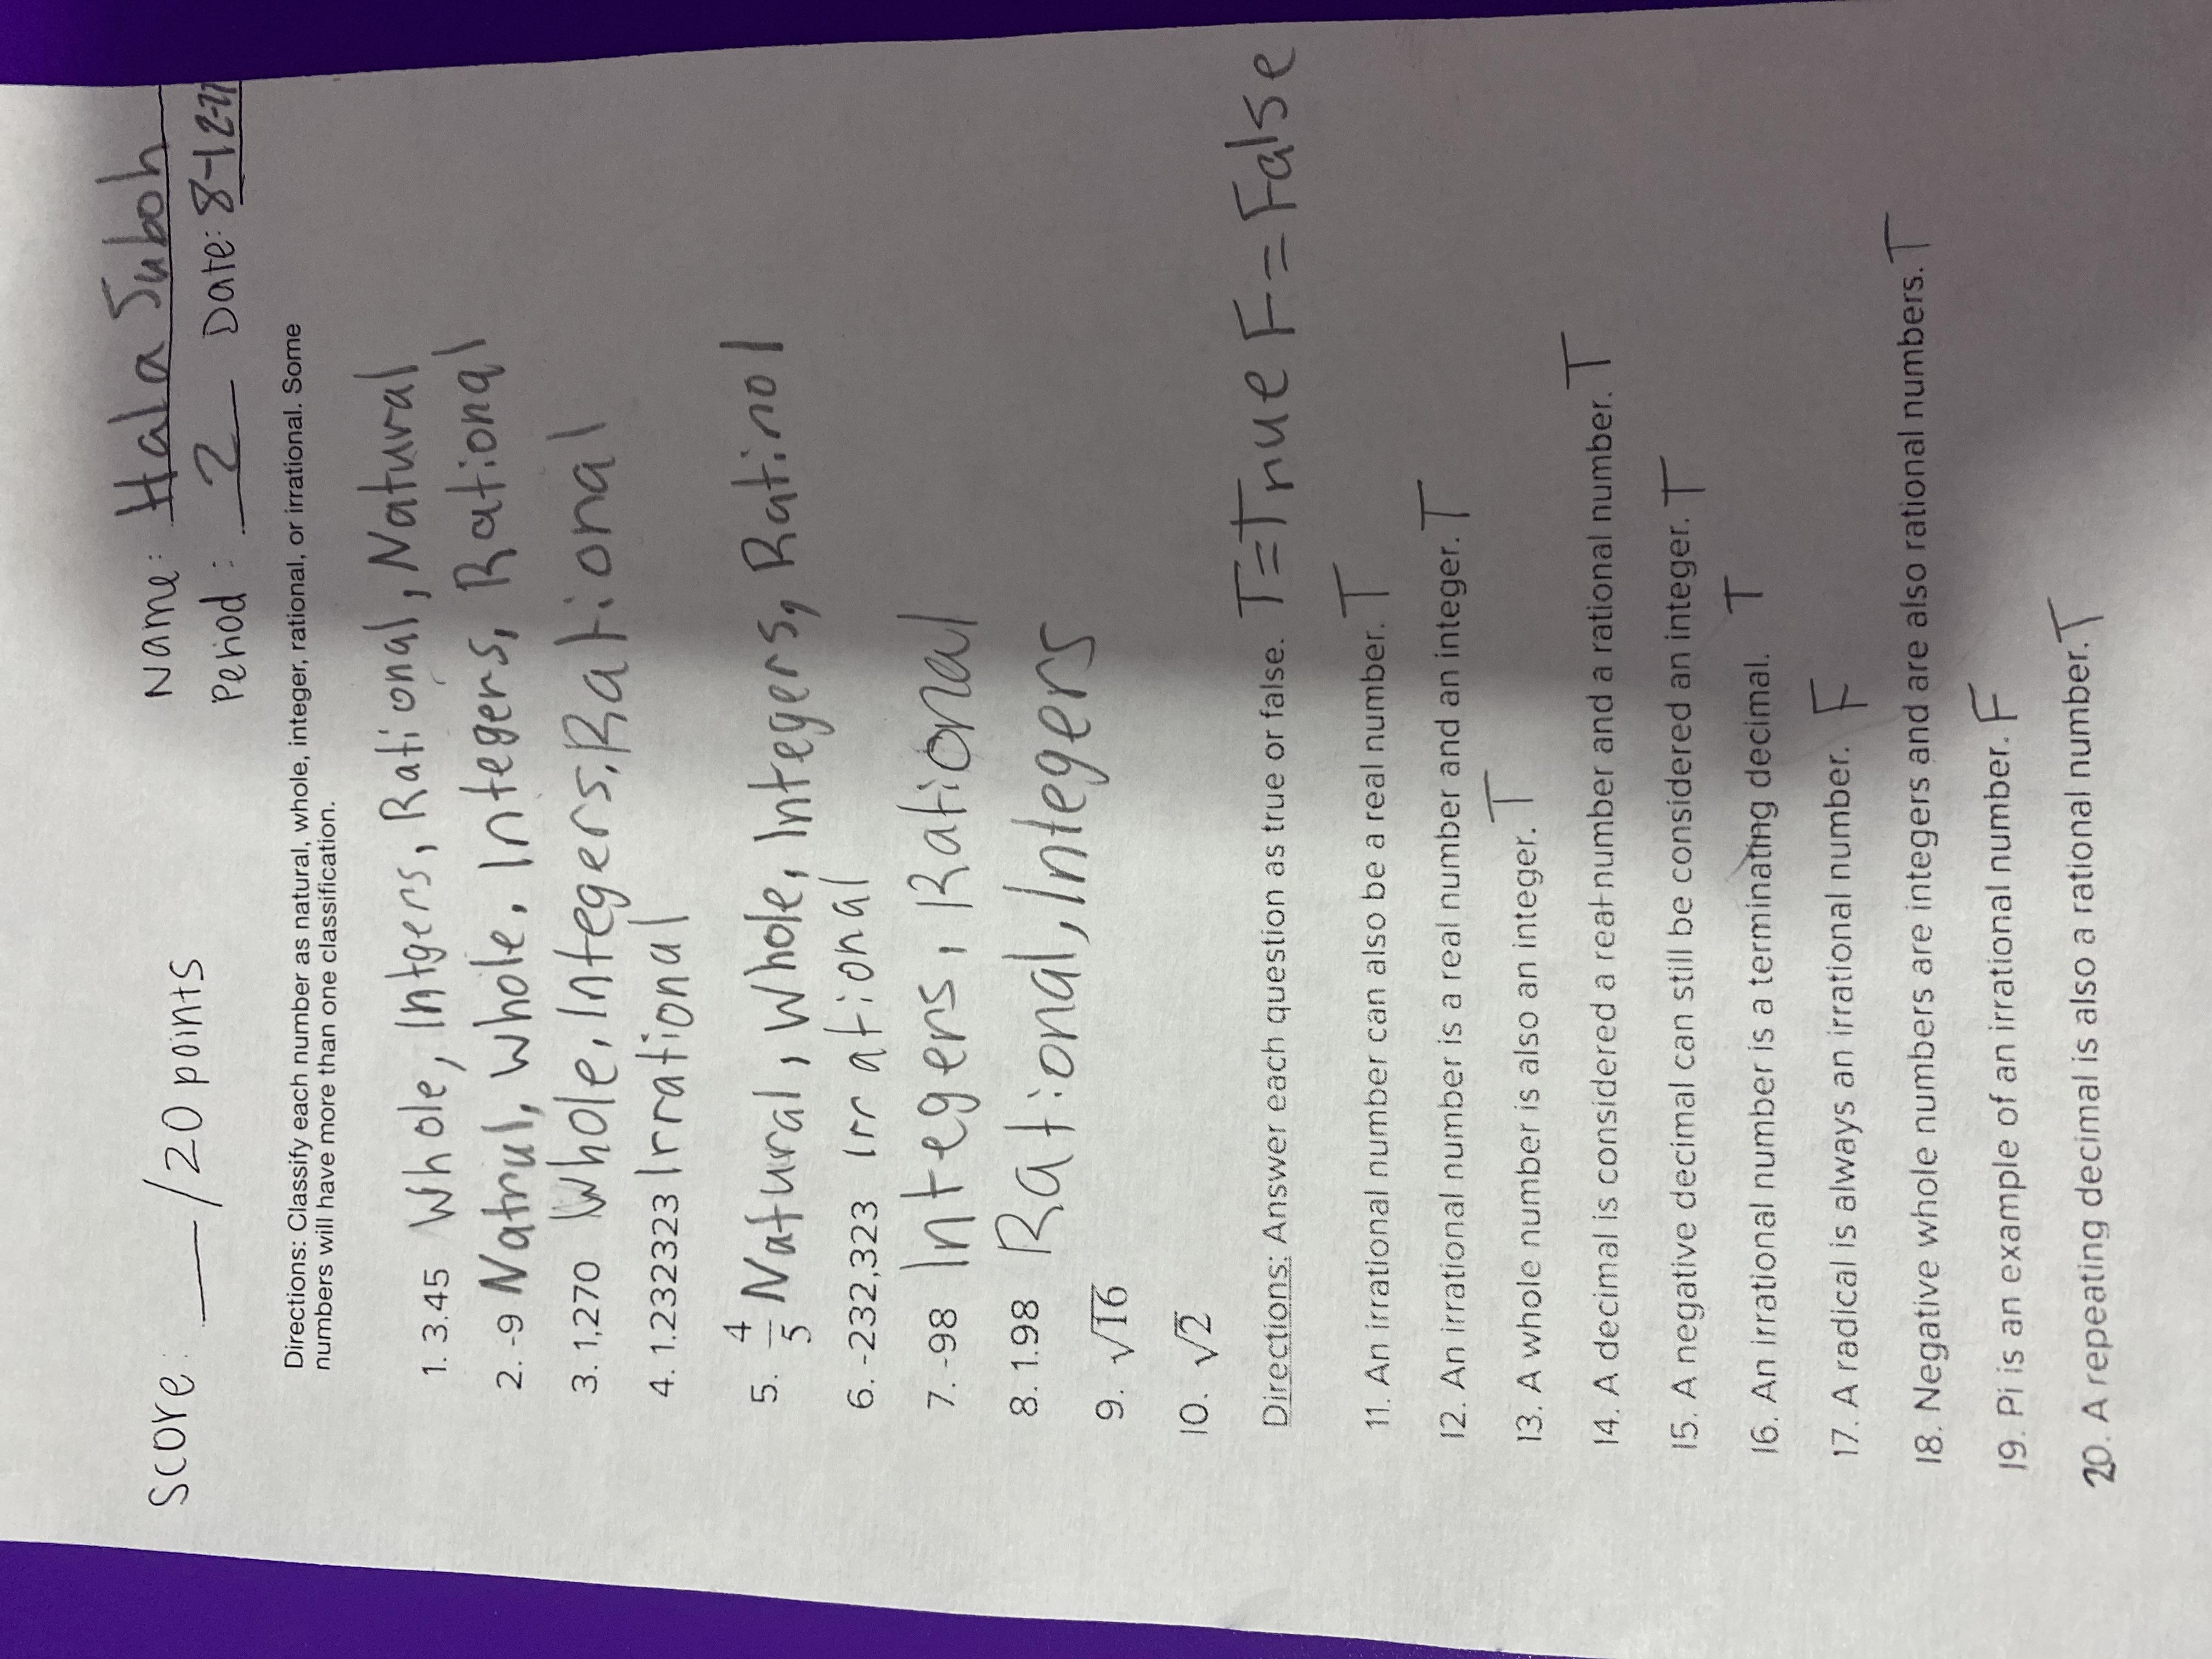 Score: ___/20 points
Name: Hala Suboh
Period: 2 Date: 8-12-
Directions: Classify each number as natural, whole, integer, rational, or irrational. Some
numbers will have more than one classification.
1. 3.45 Whole, Intgers, Rational, Natural
2. -9 Natrul, whole, Integers, Rational
3. 1,270 Whole, Integers, Rational
4. 1.232323 Irrational
5. 4/5 Natural, Whole, Integers, Ratinol
6. -232,323 Irrational
7. -98 Integers, Rational
8. 1.98 Rational, Integers
9. √16
10. √2
Directions: Answer each question as true or false. T=True F=False
11. An irrational number can also be a real number. T
12. An irrational number is a real number and an integer. T
13. A whole number is also an integer. T
14. A decimal is considered a real number and a rational number. T
15. A negative decimal can still be considered an integer. T
16. An irrational number is a terminating decimal. T
17. A radical is always an irrational number. F
18. Negative whole numbers are integers and are also rational numbers. T
19. Pi is an example of an irrational number. F
20. A repeating decimal is also a rational number. T